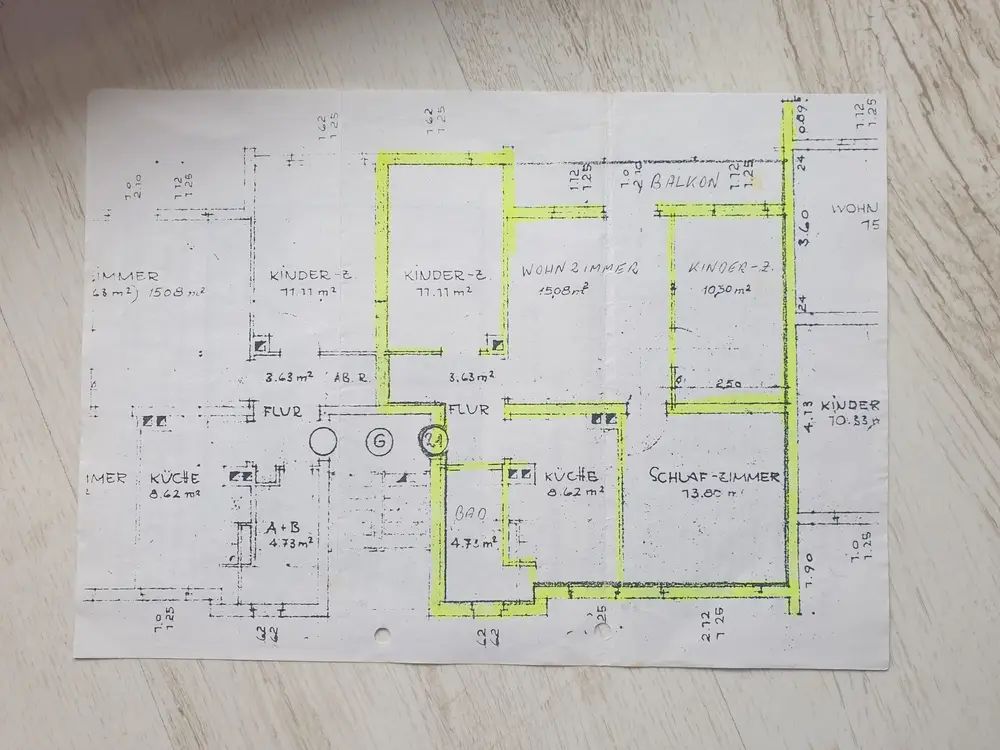 1.62
1.25
1.62
1.25
0.89⁵
1.12
1.25
1.0
2.10
1.12
1.25
1.12
1.25
1.0
2.10
BALKON
1.12
1.25
24
WOHN
15
3.60
ZIMMER
63 m²) 15.08 m²
KINDER-Z.
11.11 m²
KINDER-Z.
11.11 m²
WOHNZIMMER
15,08 m²
KINDER-Z.
10,30 m²
24
3.63 m²
AB.R.
3.63 m²
2.50
FLUR
FLUR
4.13
KINDER
10.33 m
G
21
IMMER
²
KÜCHE
8.62 m²
KÜCHE
8.62 m²
SCHLAF-ZIMMER
13.80 m²
A+B
4.73 m²
BAD
4.73 m²
1.0
1.25
1.90
1.0
1.25
62
62
62
62
1.25
2.12
1.25